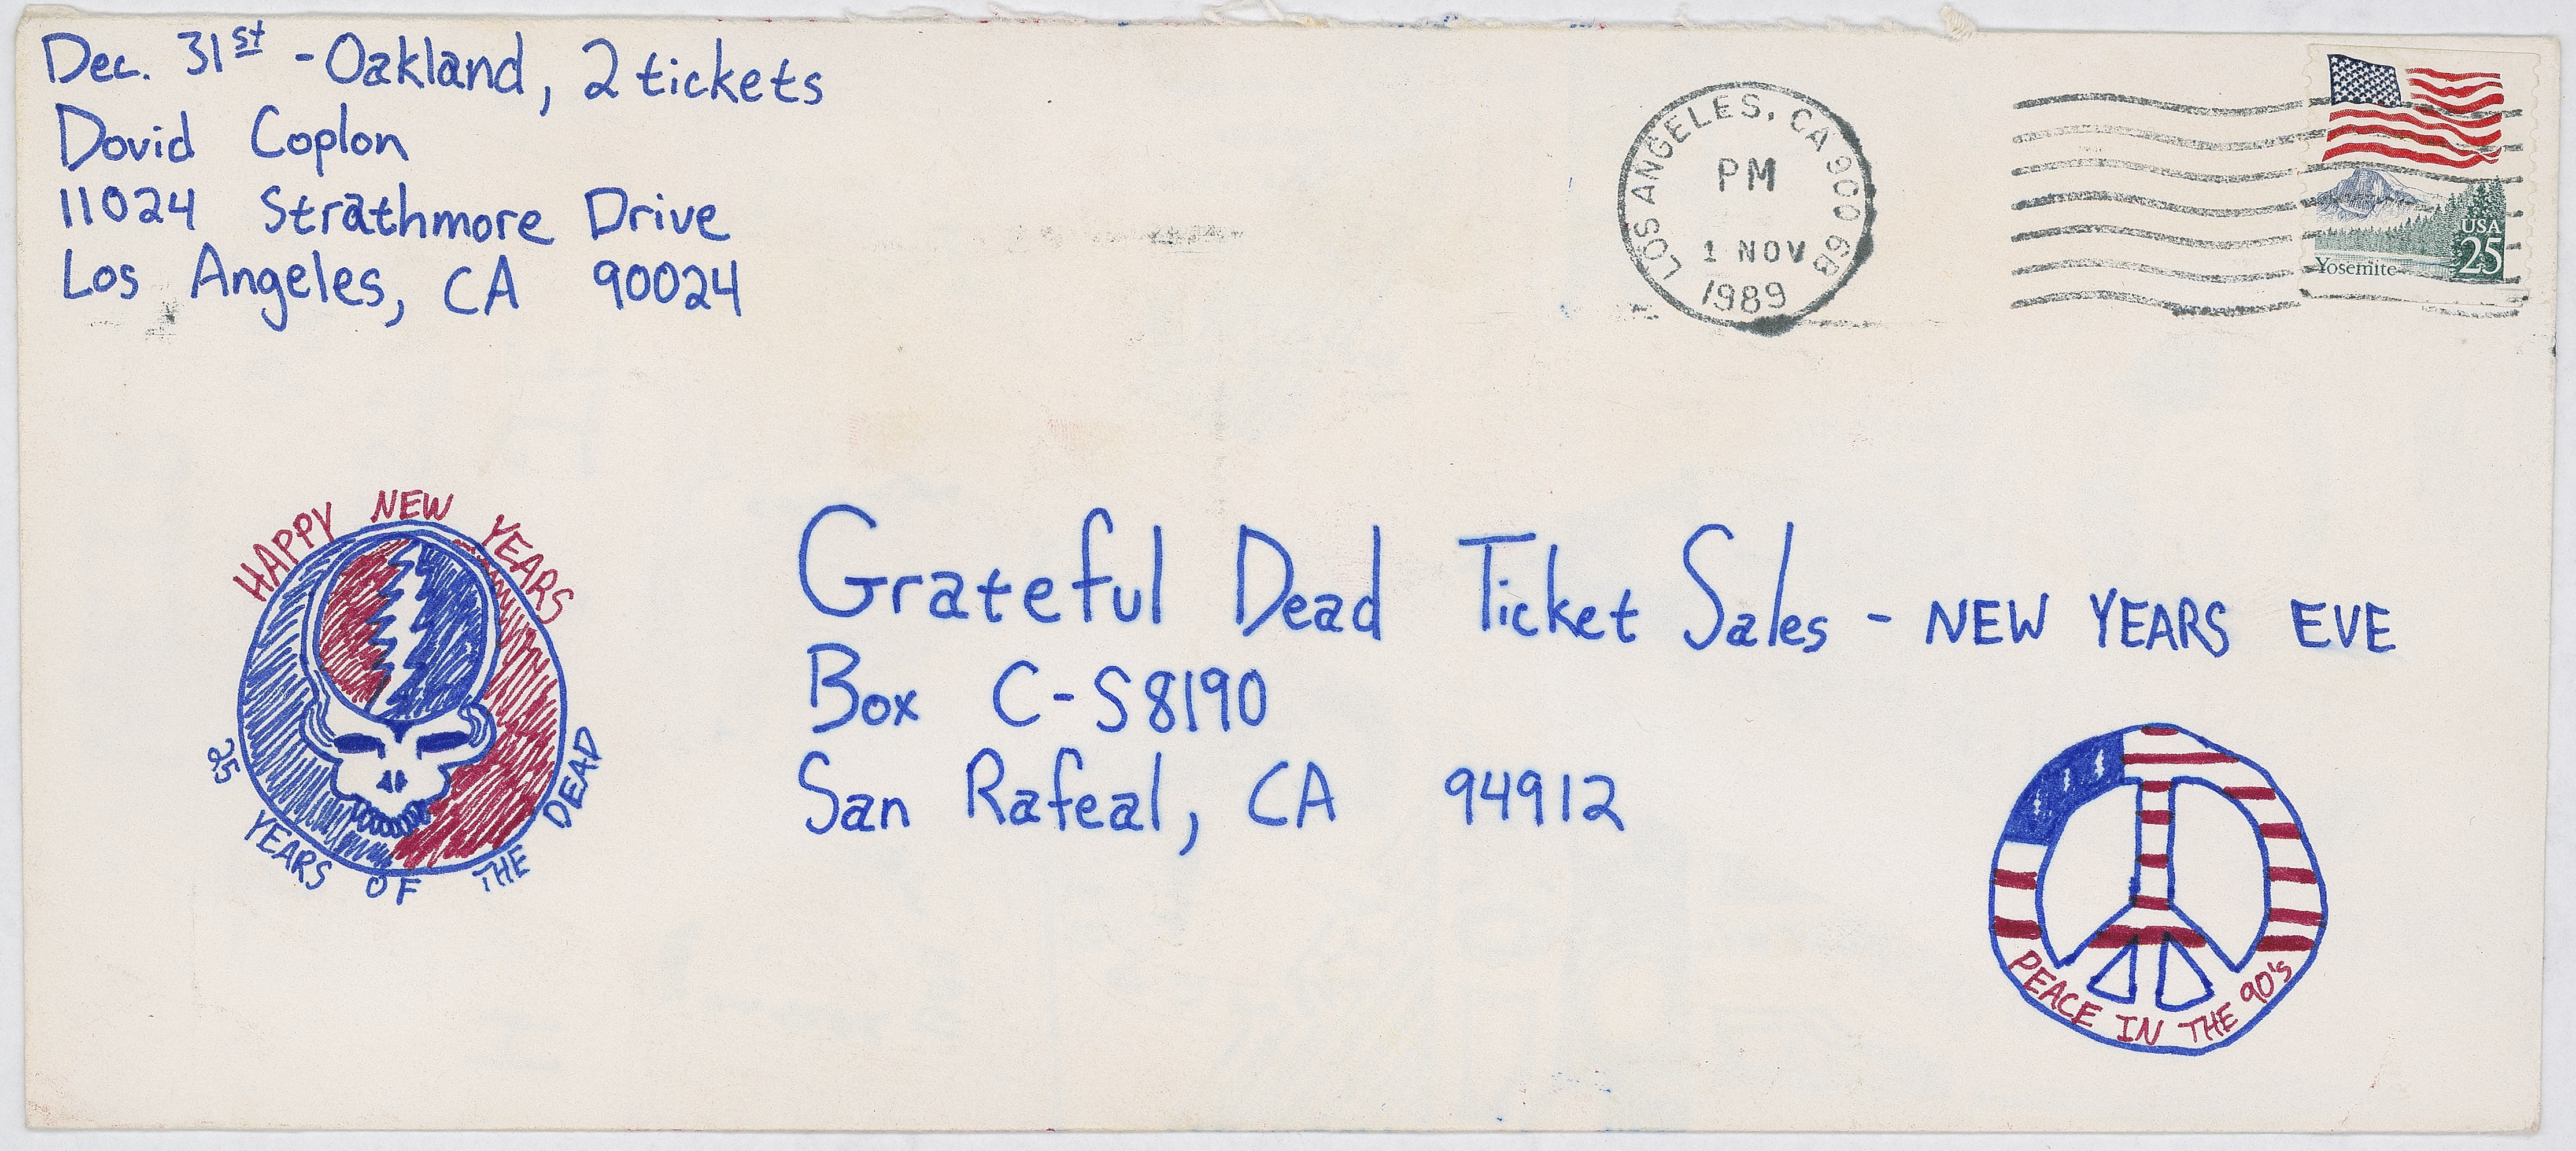 Dec. 31st - Oakland, 2 tickets
Dovid Coplon
11024 Strathmore Drive
Los Angeles, CA 90024
LOS ANGELES, CA 900 6B
PM
1 NOV
1989
USA
25
Yosemite
HAPPY NEW YEARS
25 YEARS OF THE DEAD
Grateful Dead Ticket Sales - NEW YEARS EVE
Box C-S8190
San Rafeal, CA 94912
PEACE IN THE 90's